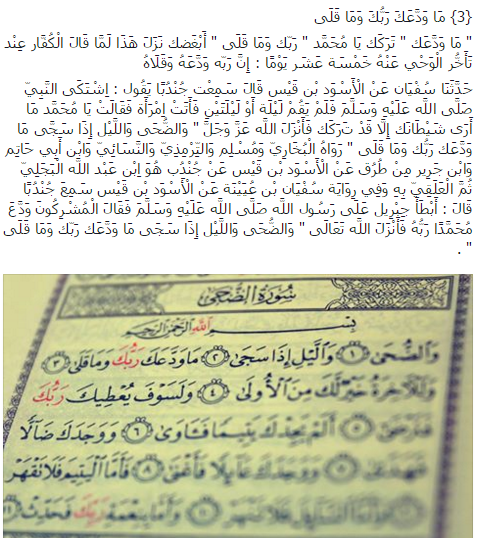 {3} مَا وَدَّعَكَ رَبُّكَ وَمَا قَلَى
" مَا وَدَّعَك " تَرَكَك يَا مُحَمَّد " رَبّك وَمَا قَلَى " أَبْغَضك نَزَلَ هَذَا لَمَّا قَالَ الْكُفَّار عِنْد
تَأَخُّر الْوَحْي عَنْهُ خَمْسَة عَشَر يَوْمًا : إِنَّ رَبّه وَدَّعَهُ وَقَلَاهُ
حَدَّثَنَا سُفْيَان عَنْ الْأَسْوَد بْن قَيْس قَالَ سَمِعْت جُنْدُبًا يَقُول : اِشْتَكَى النَّبِيّ
صَلَّى اللَّه عَلَيْهِ وَسَلَّمَ فَلَمْ يَقُمْ لَيْلَة أَوْ لَيْلَتَيْنِ فَأَتَتْ اِمْرَأَة فَقَالَتْ يَا مُحَمَّد مَا
أَرَى شَيْطَانك إِلَّا قَدْ تَرَكَك فَأَنْزَلَ اللَّه عَزَّ وَجَلَّ " وَالضُّحَى وَاللَّيْل إِذَا سَجَى مَا
وَدَّعَك رَبّك وَمَا قَلَى " رَوَاهُ الْبُخَارِيّ وَمُسْلِم وَالتِّرْمِذِيّ وَالنَّسَائِيّ وَابْن أَبِي حَاتِم
وَابْن جَرِير مِنْ طُرُق عَنْ الْأَسْوَد بْن قَيْس عَنْ جُنْدُب هُوَ اِبْن عَبْد اللَّه الْبَجَلِيّ
ثُمَّ الْعَلَقِيّ بِهِ وَفِي رِوَايَة سُفْيَان بْن عُيَيْنَة عَنْ الْأَسْوَد بْن قَيْس سَمِعَ جُنْدُبًا
قَالَ : أَبْطَأَ جِبْرِيل عَلَى رَسُول اللَّه صَلَّى اللَّه عَلَيْهِ وَسَلَّمَ فَقَالَ الْمُشْرِكُونَ وَدَّعَ
مُحَمَّدًا رَبُّهُ فَأَنْزَلَ اللَّه تَعَالَى " وَالضُّحَى وَاللَّيْل إِذَا سَجَى مَا وَدَّعَك رَبّك وَمَا قَلَى
" .
سُورَةُ الضُّحَىٰ
بِسْمِ اللَّهِ الرَّحْمَٰنِ الرَّحِيمِ
وَالضُّحَىٰ ١ وَالَّيْلِ إِذَا سَجَىٰ ٢ مَا وَدَّعَكَ رَبُّكَ وَمَا قَلَىٰ ٣
وَلَلْآخِرَةُ خَيْرٌ لَّكَ مِنَ الْأُولَىٰ ٤ وَلَسَوْفَ يُعْطِيكَ رَبُّكَ
فَتَرْضَىٰ ٥ أَلَمْ يَجِدْكَ يَتِيمًا فَـَٔاوَىٰ ٦ وَوَجَدَكَ ضَآلًّا
فَهَدَىٰ ٧ وَوَجَدَكَ عَآئِلًا فَأَغْنَىٰ ٨ فَأَمَّا الْيَتِيمَ فَلَا تَقْهَرْ
٩ وَأَمَّا السَّآئِلَ فَلَا تَنْهَرْ ١٠ وَأَمَّا بِنِعْمَةِ رَبِّكَ فَحَدِّثْ ١١